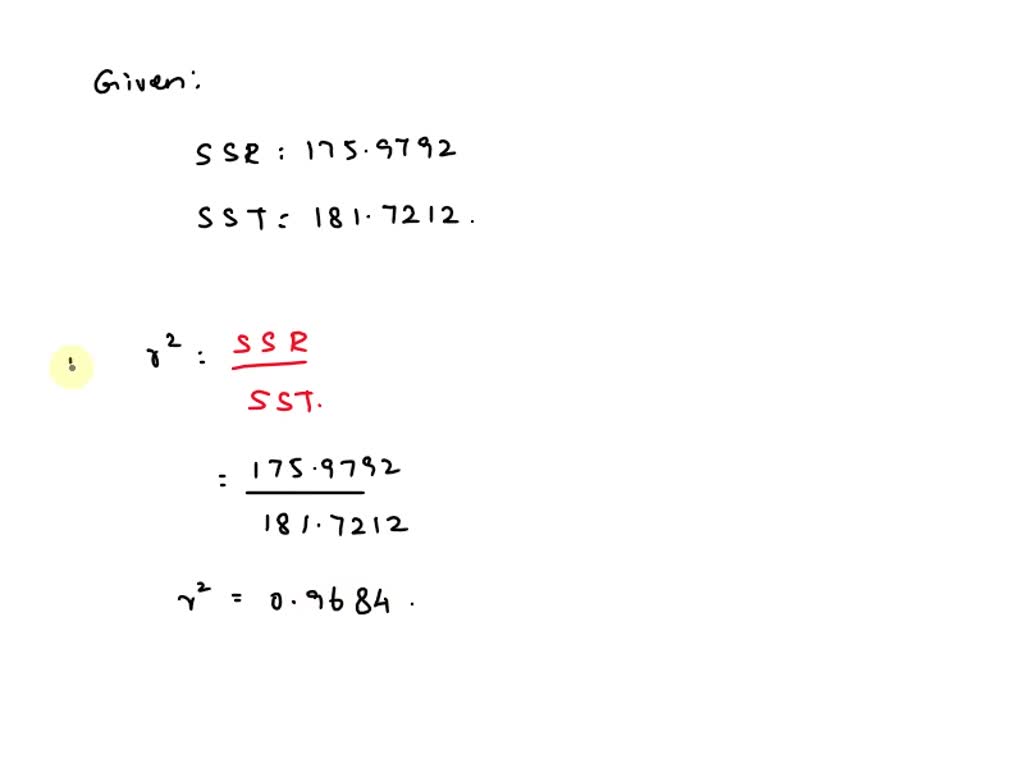 Given:
SSR : 175.9792
SST = 181.7212.
r² : SSR
SST.
= 175.9792
181.7212
r² = 0.9684.